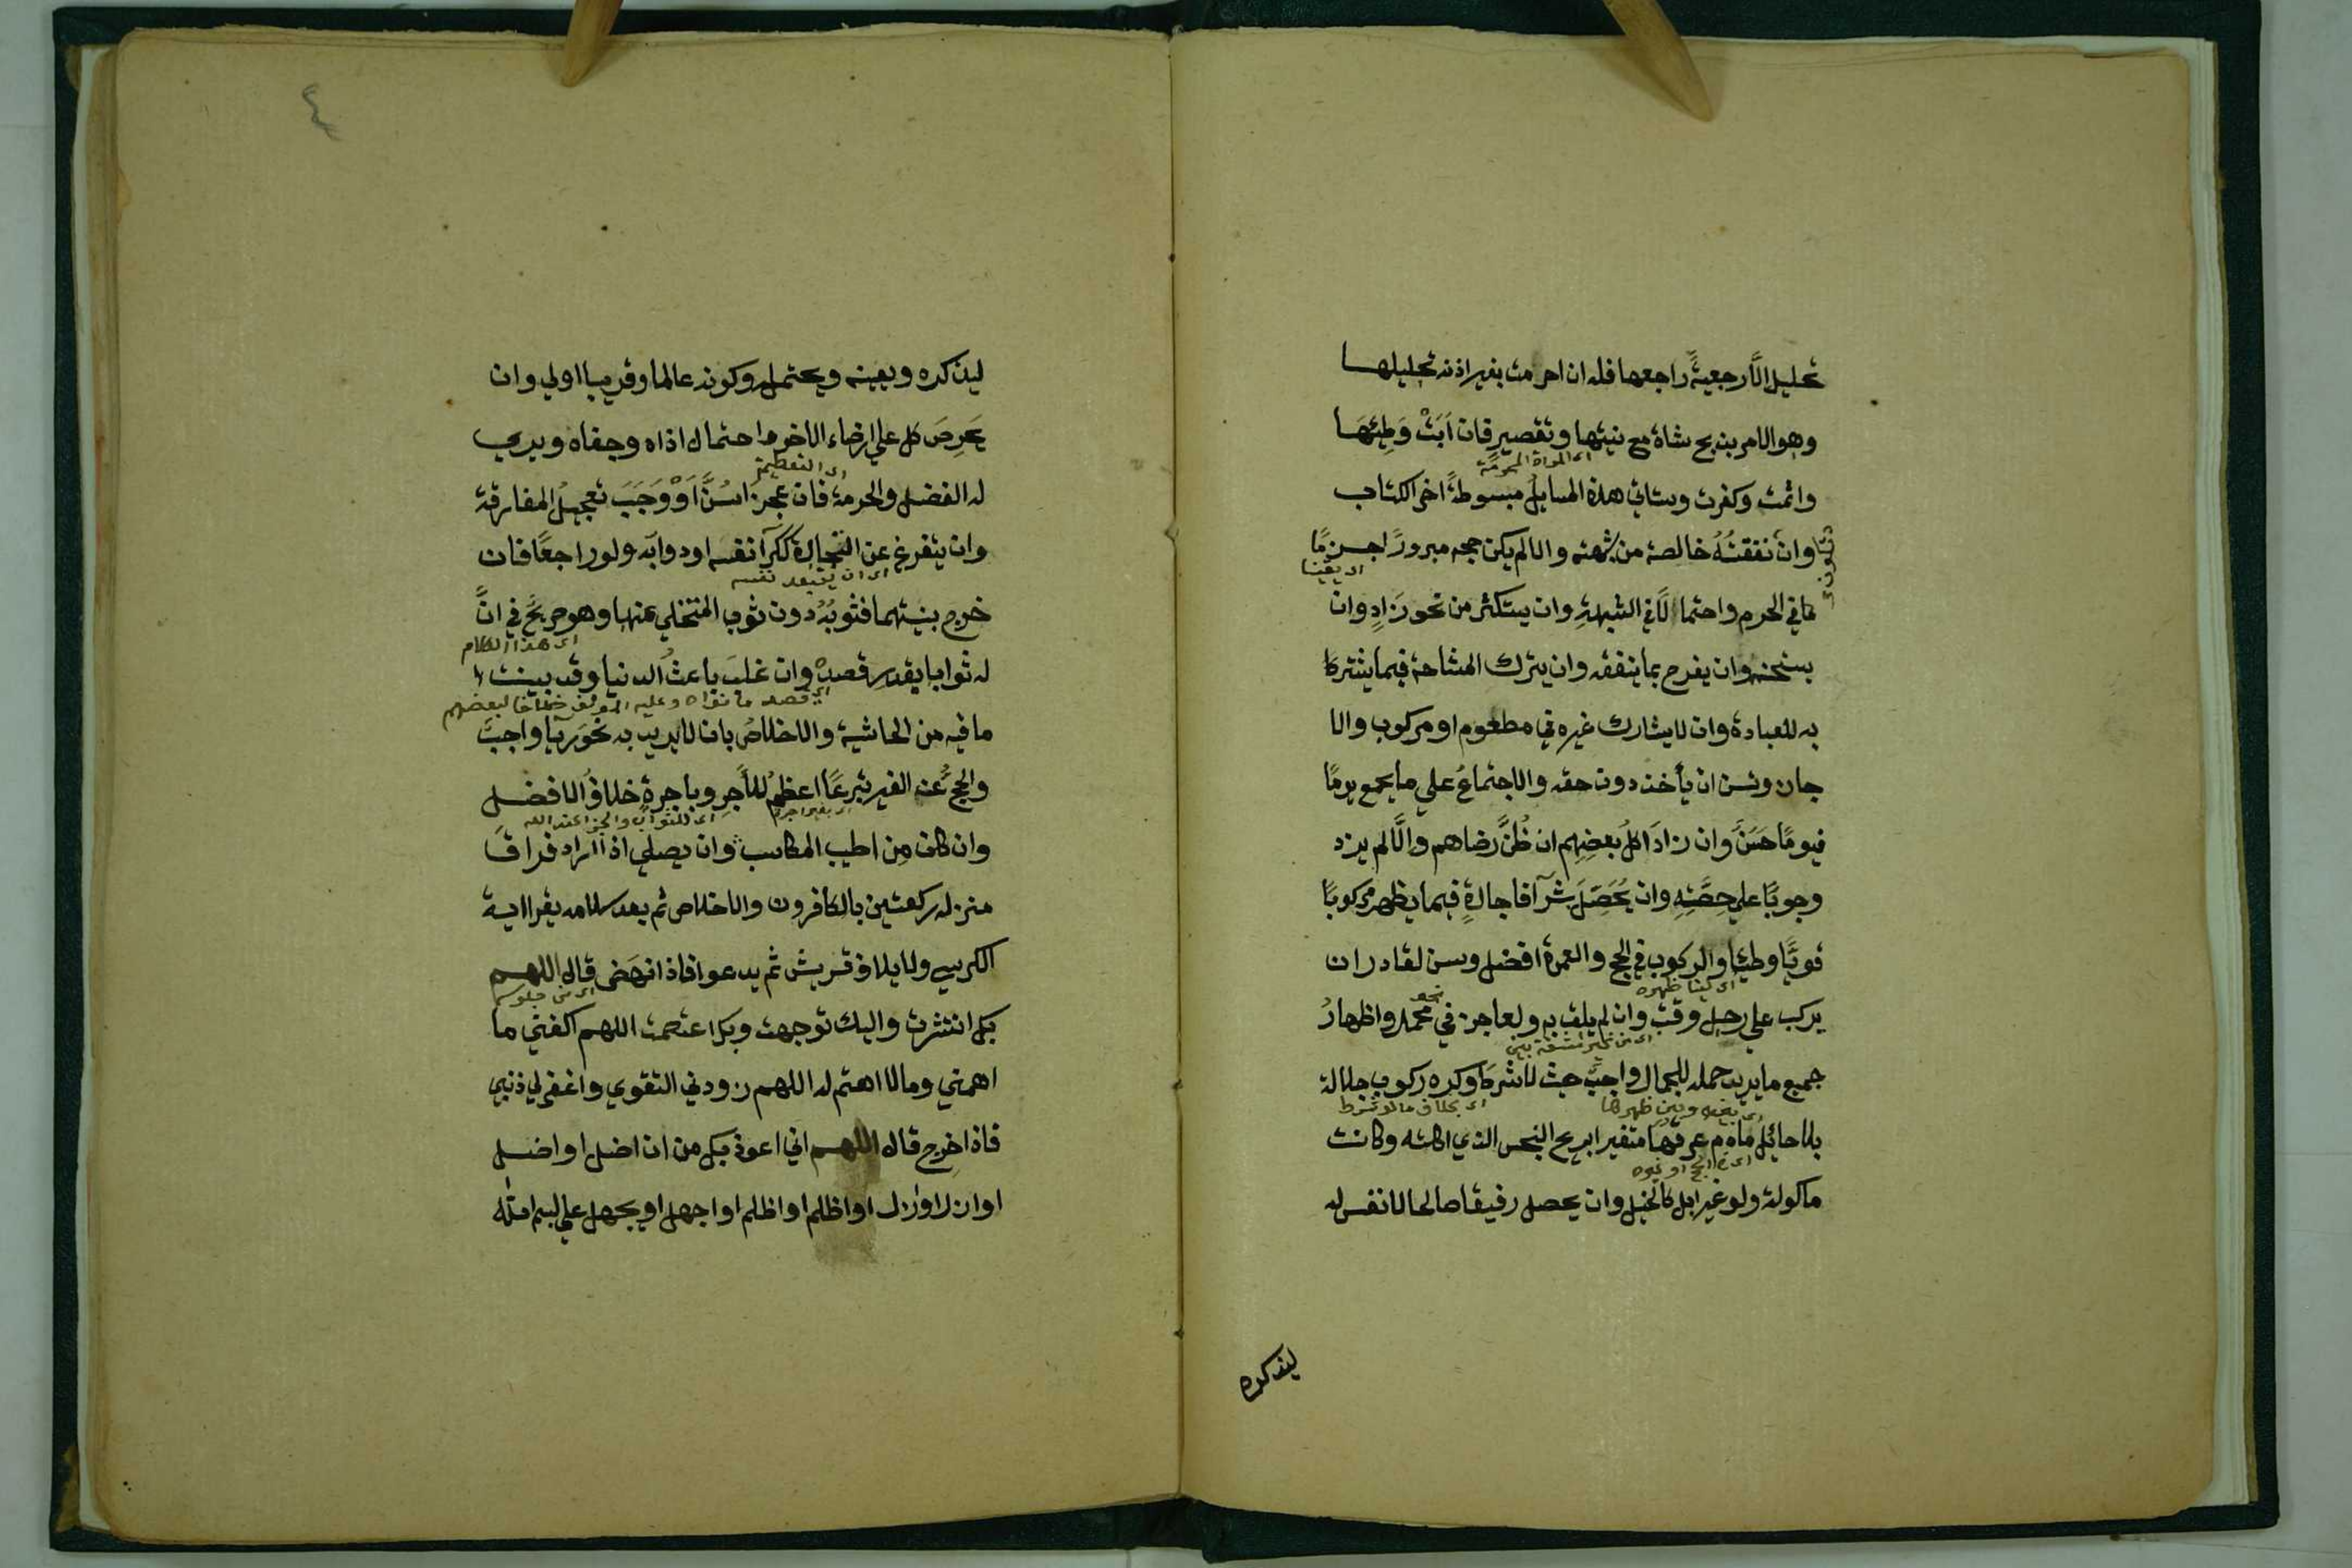 تحليل الَّا رجعيةً راجعها فله ان احرمت بغير اذنه تحليلها
وهو الامر بذبح شاة مع نيتها وتقصير فان اَبَتْ وَطِئَهَا
اى المراة المحرمة
واثمت وكفرت وستاتي هذة المسايلُ مبسوطةً اخر الكتاب
وان نفقتُهُ خالصة من شبهة والا لم يكن حجه مبرورًا جــزمًا
اى يقينا
فتكون
في الحرم واحتمالًا في الشبهةِ وان يستكثر من نحو زَادٍ وان
يسخنه وان يفرح بما ينفقه وان يترك المشاحة فيما يشتركا
به للعبادة وان لا يشارك غيره في مطعوم او مركوب والا
جاز وسن ان يأخذ دون حقه والاجتماعُ علي ما يجمع يومًا
فيومًا حَسَنٌ وان زادَ اكلُ بعضِهم ان ظُنَّ رضاهم والَّا لم يزد
وجوبًا علي حِصَّتِهِ وان يُحَصِّلَ شَرآ فاجارةٍ فيما يظهر مركوبًا
قويًّا وطيئا والركوب في الحج والعمرة افضل وسن لقادر ان
اى لينا ظهره
يركب علي رحل وقتب وان لم يلق به ولعاجز في نحو محمل واظهارُ
اى من غير مشقة بين
جميع ما يريد حمله للجمال واجبٌ حيث لا شرط وكره ركوب جلالة
اى بينه وبين ظهرها
اى بخلاف ما لو شرط
بلا حائل ما دام عرقها متغيرا بريح النجس الذي اكلته وكانت
اى في الحج او غيره
ماكولة ولو غير ابل كالخيل وان يحصل رفيقا صالحا لانفس له
ليذكره
٤
ليذكره ويعينه ويحتمله وكونه عالما وقريبا اولي وان
يَحرِصَ كل علي ارضاء الاخر واحتمال اذاه وجفاه ويري
اى التعظيم
له الفضل والحرمة فان عجزَا سُنَّ اَوْ وَجَبَ تعجيلُ المفارقة
وان يتفرغ عن التجارة ككرآ نفسه او دوابه ولو راجعًا فان
اى ان يقعد نفسه
خرج بنيتهما فثوبُهُ دون ثوب المتخلي عنها وهو صريحٌ في انَّ
اى هذا الكلام
له ثوابا بقدر قصده وان غلبَ باعثُ الدنيا وقد بينت
اى قصد ما نواه وعليه المولف خلافا لبعضهم
ما فيه من الحاشية والاخلاصُ بان لا يريد به نحوَ ريا واجبٌ
والحجُّ عن الغير تبرعًا اعظمُ للأجرِ وباجرةٍ خلافُ الافضــل
اى بغير اجرة
اى الثواب والجزا عند الله
وان كان مِن اطيب المكاسب وان يصلي اذا اراد فراقَ
منزله ركعتين بالكافرون والاخلاص ثم بعد سلامه يقرا اية
الكرسي ولايلاف قريش ثم يدعو افاذا نهَض قال اللهــم
اى من جلوسه
بك انتشرت واليك توجهت وبك اعتصمت اللهم اكفني ما
اهمني وما لا اهتم له اللهم زودني التقوي واغفر لي ذنبي
فاذا خرج قال اللهــم اني اعوذ بك من ان اضل او اضل
او ازل او ازل او اظلم او اظلم او اجهل او يجهل علي